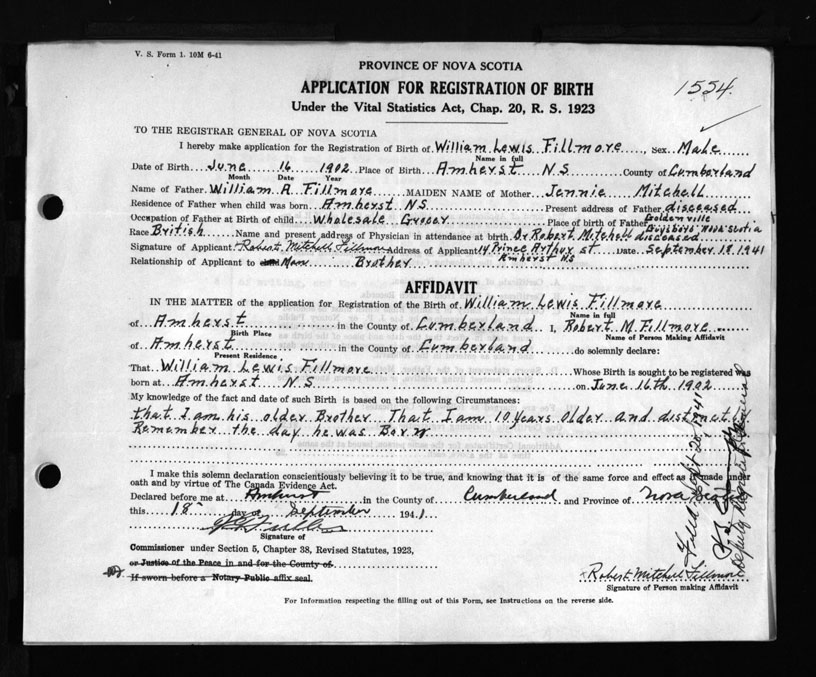 V. S. Form 1. 10M 6-41
PROVINCE OF NOVA SCOTIA
APPLICATION FOR REGISTRATION OF BIRTH
Under the Vital Statistics Act, Chap. 20, R. S. 1923
1554.
TO THE REGISTRAR GENERAL OF NOVA SCOTIA
I hereby make application for the Registration of Birth of William Lewis Fillmore, Sex Male
Name in full
Date of Birth June 16 1902 Place of Birth Amherst NS County of Cumberland
Month Date Year
Name of Father William A Fillmore MAIDEN NAME of Mother Jennie Mitchell
Residence of Father when child was born Amherst NS Present address of Father disceased
Occupation of Father at Birth of child Wholesale Grocer Place of birth of Father Goldenville
Guysboro Nova Scotia
Race British Name and present address of Physician in attendance at birth Dr Robert Mitchell disceased
Signature of Applicant Robert Mitchell Fillmore Address of Applicant 14 Prince Arthur st Date September 18 1941
Amherst NS
Relationship of Applicant to Man Brother
AFFIDAVIT
IN THE MATTER of the application for Registration of the Birth of William Lewis Fillmore
Name in full
of Amherst in the County of Cumberland I, Robert M. Fillmore
Birth Place Name of Person Making Affidavit
of Amherst in the County of Cumberland do solemnly declare:
Present Residence
That William Lewis Fillmore Whose Birth is sought to be registered was
born at Amherst NS on June 16th 1902
My knowledge of the fact and date of such Birth is based on the following Circumstances:
that I am his older Brother That I am 10 years older and distinctly
Remember the day he was Born
I make this solemn declaration conscientiously believing it to be true, and knowing that it is of the same force and effect as if made under
oath and by virtue of The Canada Evidence Act.
Declared before me at Amherst in the County of Cumberland and Province of Nova Scotia
this 18 day of September 1941
Signature of
Commissioner under Section 5, Chapter 38, Revised Statutes, 1923,
or Justice of the Peace in and for the County of
If sworn before a Notary Public affix seal.
Robert Mitchell Fillmore
Signature of Person making Affidavit
For Information respecting the filling out of this Form, see Instructions on the reverse side.
Filed Sept 20 1941
Deputy Registrar General